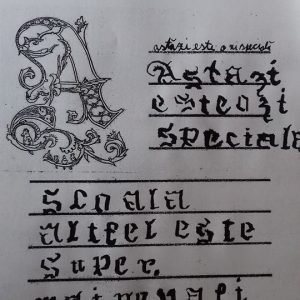 astazi este o zi speciala
Astazi
este o zi
speciala
Scoala
altfel este
super.
mai venati